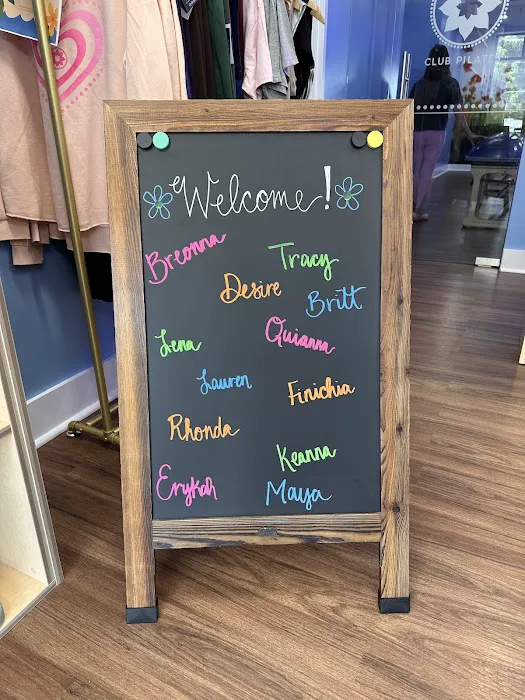 CLUB PILATES
Welcome!
Breonna
Tracy
Desire
Britt
Quianna
Lena
Lauren
Finichia
Rhonda
Keanna
Erykah
Maya